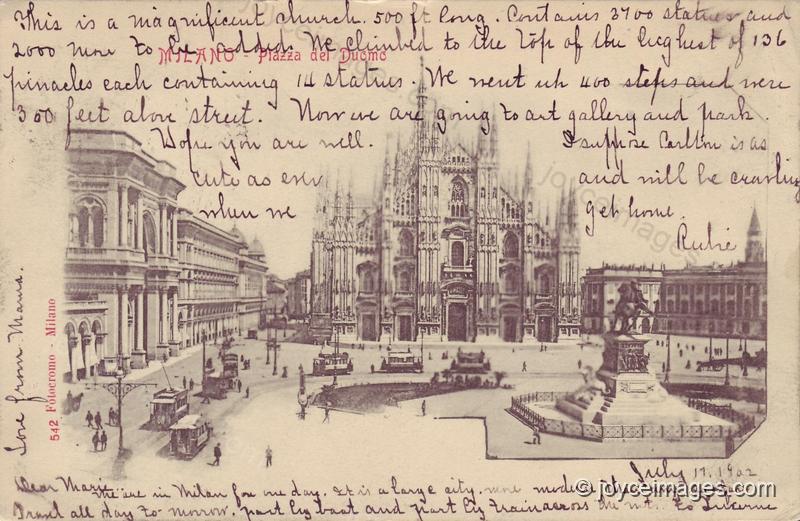 This is a magnificent church. 500 ft long. Contains 3700 statues and
2000 more to be added. We climbed to the top of the highest of 136
MILANO - Piazza del Duomo
pinacles each containing 14 statues. We went up 400 steps and were
300 feet above street. Now we are going to art gallery and park.
Hope you are well. I suppose Carlton is as
cute as ever and will be crawling
when we get home.
Rubie
Love from Mama.
542 Fotocromo - Milano
July 11, 1902
Dear Marie
We are in Milan for one day. It is a large city, more modern
Travel all day to-morrow, part by boat and part by train across the mt. to Lucerne
© joyceimages.com
joyceimages